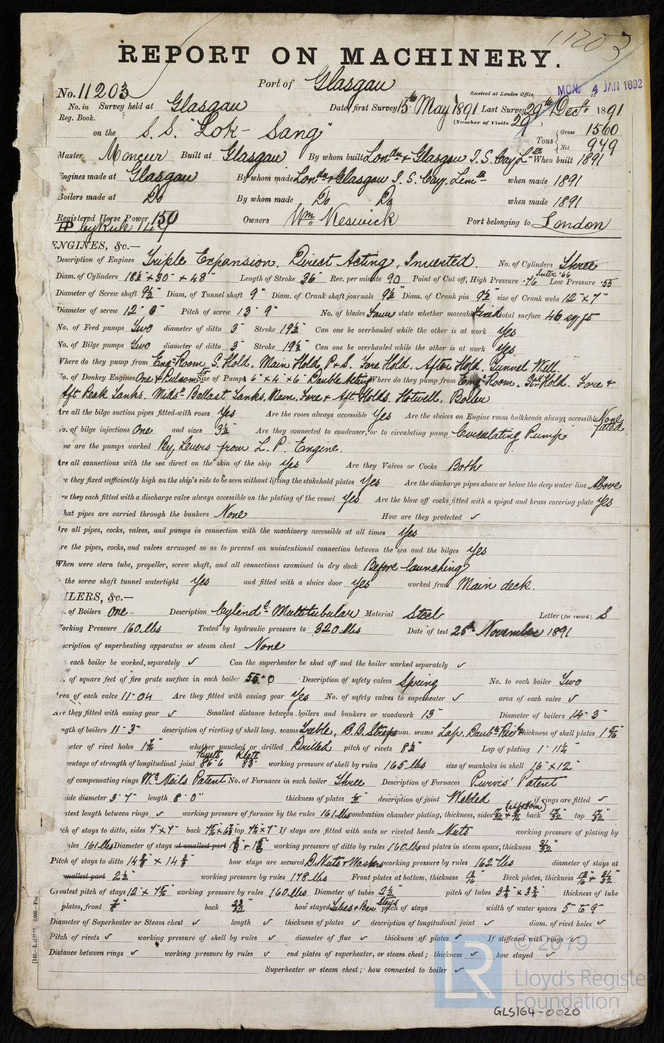 11203
REPORT ON MACHINERY.
Port of Glasgow
Received at London Office
MON. 4 JAN 1892
No. 11203
No. in Survey held at Glasgow Date, first Survey 15th May 1891 Last Survey 29th Dec. 1891
Reg. Book. (Number of Visits 29)
on the S.S. "Lok-Sang" Tons Gross 1560 Net 949
Master Moncur Built at Glasgow By whom built Lon. & Glasgow I.S. Coy Ltd When built 1891
Engines made at Glasgow By whom made Lon. & Glasgow I.S. Coy. Lim. when made 1891
Boilers made at Do By whom made Do Do when made 1891
Registered Horse Power 150 Owners Wm Keswick Port belonging to London
ENGINES, &c.—
Description of Engines Triple Expansion, Direct Acting, Inverted. No. of Cylinders Three
Diam. of Cylinders Length of Stroke 36" Rev. per minute 90 Point of Cut off, High Pressure .76 Low Pressure .55
Diameter of Screw shaft Diam. of Tunnel shaft 9" Diam. of Crank shaft journals Diam. of Crank pin size of Crank webs 12" x 7"
Diameter of screw 12' 6" Pitch of screw 13' 9" No. of blades Four state whether moveable total surface 46 sq ft
No. of Feed pumps Two diameter of ditto 3" Stroke 19½" Can one be overhauled while the other is at work Yes
No. of Bilge pumps Two diameter of ditto 3" Stroke 19½" Can one be overhauled while the other is at work Yes
Where do they pump from Eng. Room, Hold, Main Hold, P & S. Fore Hold, After Hold, Tunnel Well
No. of Donkey Engines Size of Pumps Double Acting Where do they pump from Eng. Room, Hold. Fore &
Aft Peak Tanks. Mids. Ballast Tanks, Main, Fore & Aft Holds. Hotwell. Boiler
Are all the bilge suction pipes fitted with roses Yes Are the roses always accessible Yes Are the sluices on Engine room bulkheads always accessible None fitted
No. of bilge injections One and sizes 3½" Are they connected to condenser, or to circulating pump Circulating Pump
How are the pumps worked By Levers from L.P. Engine.
Are all connections with the sea direct on the skin of the ship Yes Are they Valves or Cocks Both
they fixed sufficiently high on the ship's side to be seen without lifting the stokehold plates Yes Are the discharge pipes above or below the deep water line Above
they each fitted with a discharge valve always accessible on the plating of the vessel Yes Are the blow off cocks fitted with a spigot and brass covering plate Yes
What pipes are carried through the bunkers None How are they protected ✓
Are all pipes, cocks, valves, and pumps in connection with the machinery accessible at all times Yes
the pipes, cocks, and valves arranged so as to prevent an unintentional connection between the sea and the bilges Yes
When were stern tube, propeller, screw shaft, and all connections examined in dry dock Before launching
the screw shaft tunnel watertight Yes and fitted with a sluice door Yes worked from Main deck.
BOILERS, &c.—
No. of Boilers One Description Cylind. Multitubular Material Steel Letter (for record) S
Working Pressure 160 lbs Tested by hydraulic pressure to 320 lbs Date of test November 1891
Description of superheating apparatus or steam chest None
each boiler be worked separately ✓ Can the superheater be shut off and the boiler worked separately ✓
of square feet of fire grate surface in each boiler Description of safety valves Spring No. to each boiler Two
Area of each valve 11.04 Are they fitted with easing gear Yes No. of safety valves to superheater ✓ area of each valve ✓
Are they fitted with easing gear ✓ Smallest distance between boilers and bunkers or woodwork Diameter of boilers 14' 3"
Length of boilers 11' 3" description of riveting of shell long. seams seams thickness of shell plates
diameter of rivet holes whether punched or drilled Drilled pitch of rivets Lap of plating
percentage of strength of longitudinal joint working pressure of shell by rules 165 lbs size of manholes in shell 16" x 12"
of compensating rings McNeils Patent No. of Furnaces in each boiler Three Description of Furnaces Purves' Patent
diameter 3' 7" length 8' 0" thickness of plates description of joint Welded if rings are fitted ✓
greatest length between rings ✓ working pressure of furnace by the rules 161 lbs combustion chamber plating, thickness, sides back top
pitch of stays to ditto, sides back top If stays are fitted with nuts or riveted heads Nuts working pressure of plating by
rules 161 lbs Diameter of stays at smallest part working pressure of ditto by rules 160 lbs end plates in steam space, thickness
Pitch of stays to ditto how stays are secured D. Nuts & Washers working pressure by rules 162 lbs diameter of stays at
smallest part working pressure by rules 178 lbs Front plates at bottom, thickness Back plates, thickness
Greatest pitch of stays working pressure by rules 160 lbs Diameter of tubes pitch of tubes thickness of tube
plates, front back how stayed pitch of stays width of water spaces
Diameter of Superheater or Steam chest ✓ length ✓ thickness of plates ✓ description of longitudinal joint ✓ diam. of rivet holes ✓
Pitch of rivets ✓ working pressure of shell by rules ✓ diameter of flue ✓ thickness of plates ✓ If stiffened with rings ✓
Distance between rings ✓ working pressure by rules ✓ end plates of superheater, or steam chest; thickness ✓ how stayed ✓
Superheater or steam chest; how connected to boiler ✓
© 2019
LR
Lloyd's Register
Foundation
GLS164-0020